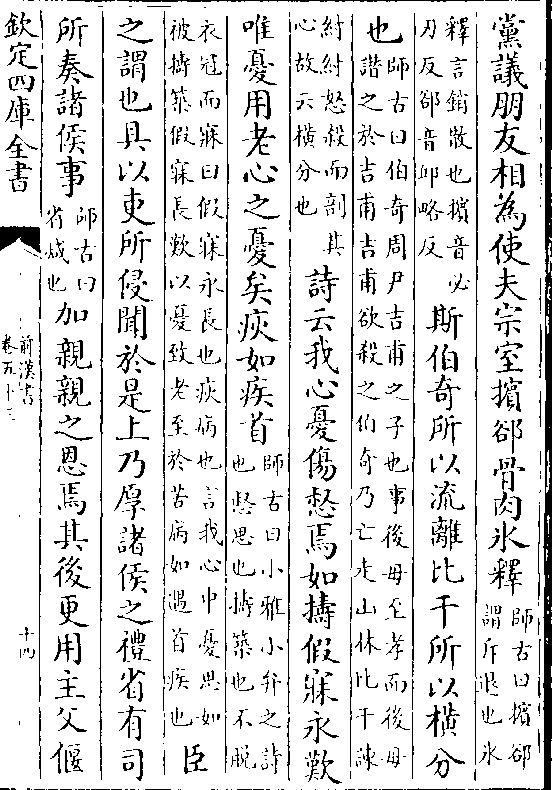 黨議朋友相為使夫宗室擯郤骨肉氷釋師古曰擯郤謂斥退也氷
釋言銷散也擯音必刃反郤音邱略反斯伯奇所以流離比干所以橫分
也師古曰伯奇周尹吉甫之子也事後母至孝而後母譖之於吉甫吉甫欲殺之伯奇乃亡走山林比干諫
紂紂怒殺而剖其心故云橫分也詩云我心憂傷惄焉如擣假寐永歎
唯憂用老心之憂矣疢如疾首師古曰小雅小弁之詩也惄思也擣築也不脫
衣冠而寐曰假寐永長也疢病也言我心中憂思如被擣築假寐長歎以憂致老至於苦病如遇首疾也臣
之謂也具以吏所侵聞於是上乃厚諸侯之禮省有司
所奏諸侯事師古曰省減也加親親之恩焉其後更用主父偃
欽定四庫全書
前漢書
卷五十三
十四